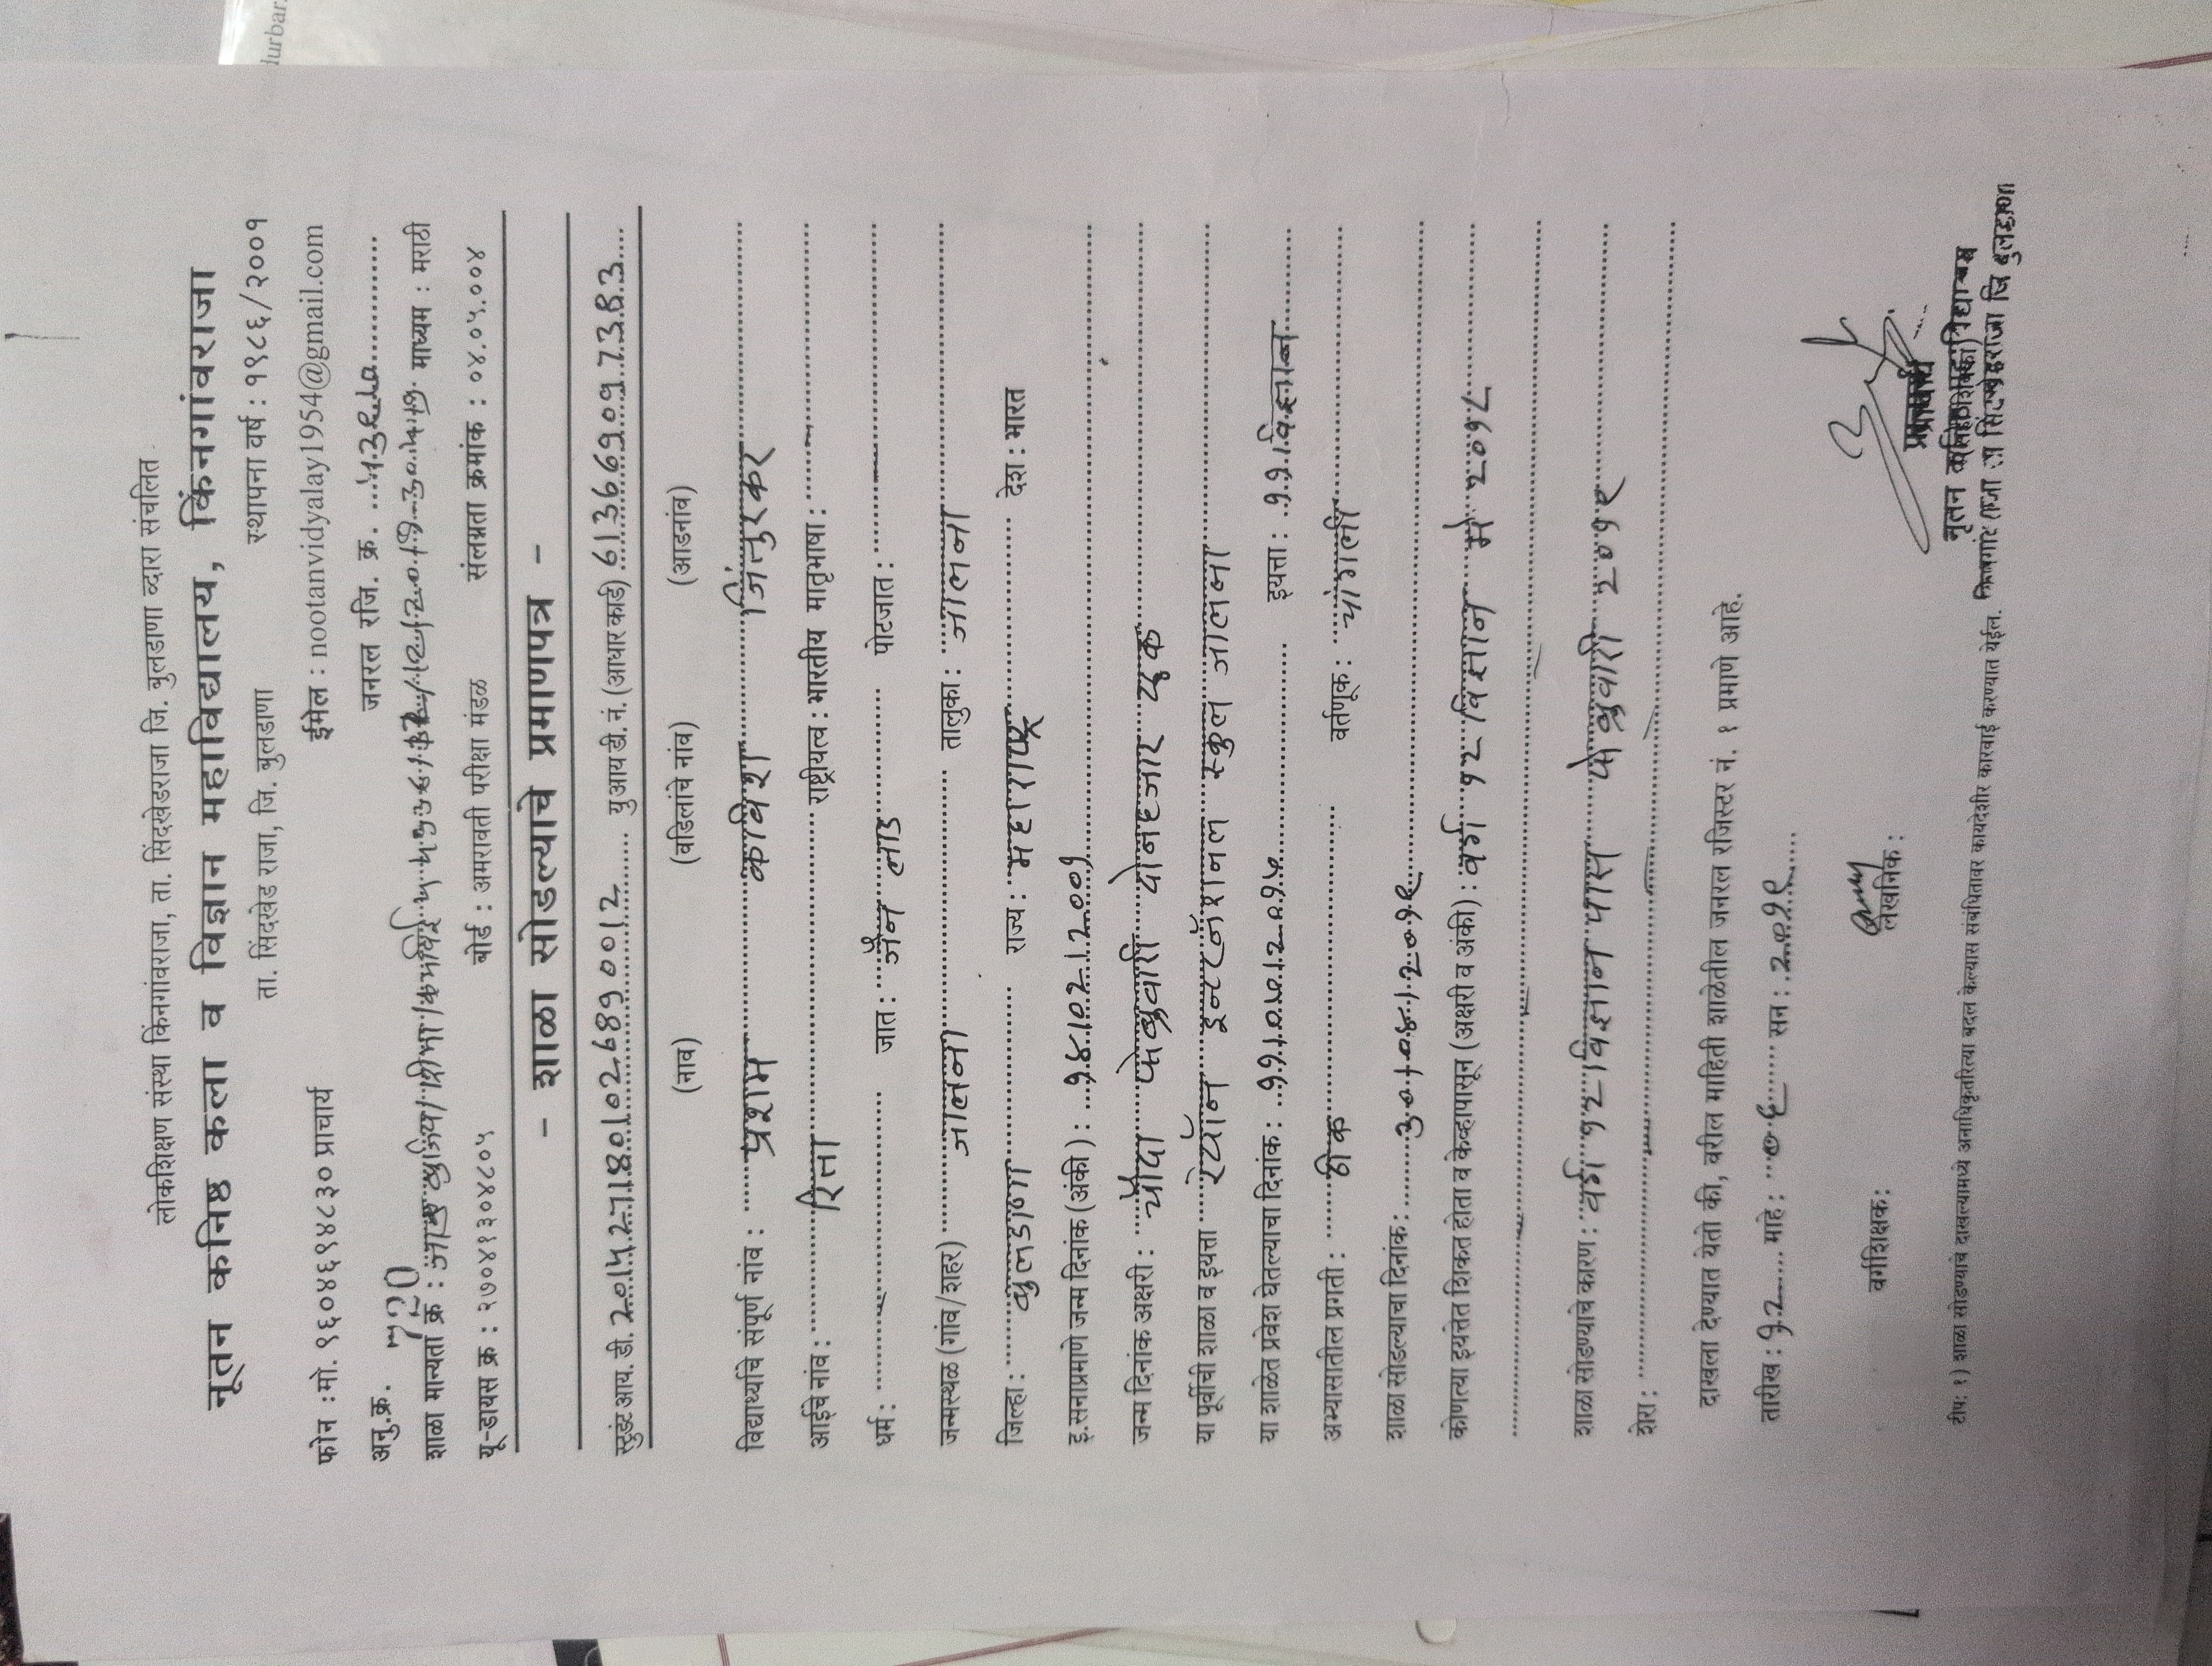 durbar.
लोकशिक्षण संस्था किनगांवराजा, ता. सिंदखेडराजा जि. बुलडाणा व्दारा संचलित
नूतन कनिष्ठ कला व विज्ञान महाविद्यालय, किंनगांवराजा
ता. सिंदखेड राजा, जि. बुलडाणा स्थापना वर्ष : १९८६/२००१
फोन : मो. ९६०४६९४८३० प्राचार्य ईमेल : nootanvidyalay1954@gmail.com
अनु.क्र. जनरल रजि. क्र.
शाळा मान्यता क्र : माध्यम : मराठी
यू-डायस क्र : २७०४१३०४८०५ बोर्ड : अमरावती परीक्षा मंडळ संलग्नता क्रमांक : ०४.०५.००४
- शाळा सोडल्याचे प्रमाणपत्र -
स्टुडंट आय. डी. युआय डी. नं. (आधार कार्ड) 613669097383
(नाव) (वडिलांचे नांव) (आडनांव)
विद्यार्थ्याचे संपूर्ण नांव : प्रशम कविश जिंतुरकर
आईचे नांव : रिता राष्ट्रीयत्व : भारतीय मातृभाषा :
धर्म : जात : जैन लाड पोटजात :
जन्मस्थळ (गांव/शहर) जालना तालुका : जालना
जिल्हा : बुलडाणा राज्य : महाराष्ट्र देश : भारत
इ.सनाप्रमाणे जन्म दिनांक (अंकी) : १४/०२/२००१
जन्म दिनांक अक्षरी : चौदा फेब्रुवारी दोनहजार एक
या पूर्वीची शाळा व इयत्ता रयॉन इन्टरनॅशनल स्कुल जालना
या शाळेत प्रवेश घेतल्याचा दिनांक : इयत्ता : ११ विज्ञान
अभ्यासातील प्रगती : ठीक वर्तणूक : चांगली
शाळा सोडल्याचा दिनांक :
कोणत्या इयत्तेत शिकत होता व केव्हापासून (अक्षरी व अंकी) : वर्ग १२ विज्ञान मे २०१८
शाळा सोडण्याचे कारण : वर्ग १२ विज्ञान पास फेब्रुवारी २०१९
शेरा :
दाखला देण्यात येतो की, वरील माहिती शाळेतील जनरल रजिस्टर नं. १ प्रमाणे आहे.
तारीख : १२ माहे : ०६ सन : २०१९
वर्गशिक्षक: लेखनिक:
टीप: १) शाळा सोडण्याचे दाखल्यामध्ये अनाधिकृतरित्या बदल केल्यास संबंधितावर कायदेशीर कारवाई करण्यात येईल.